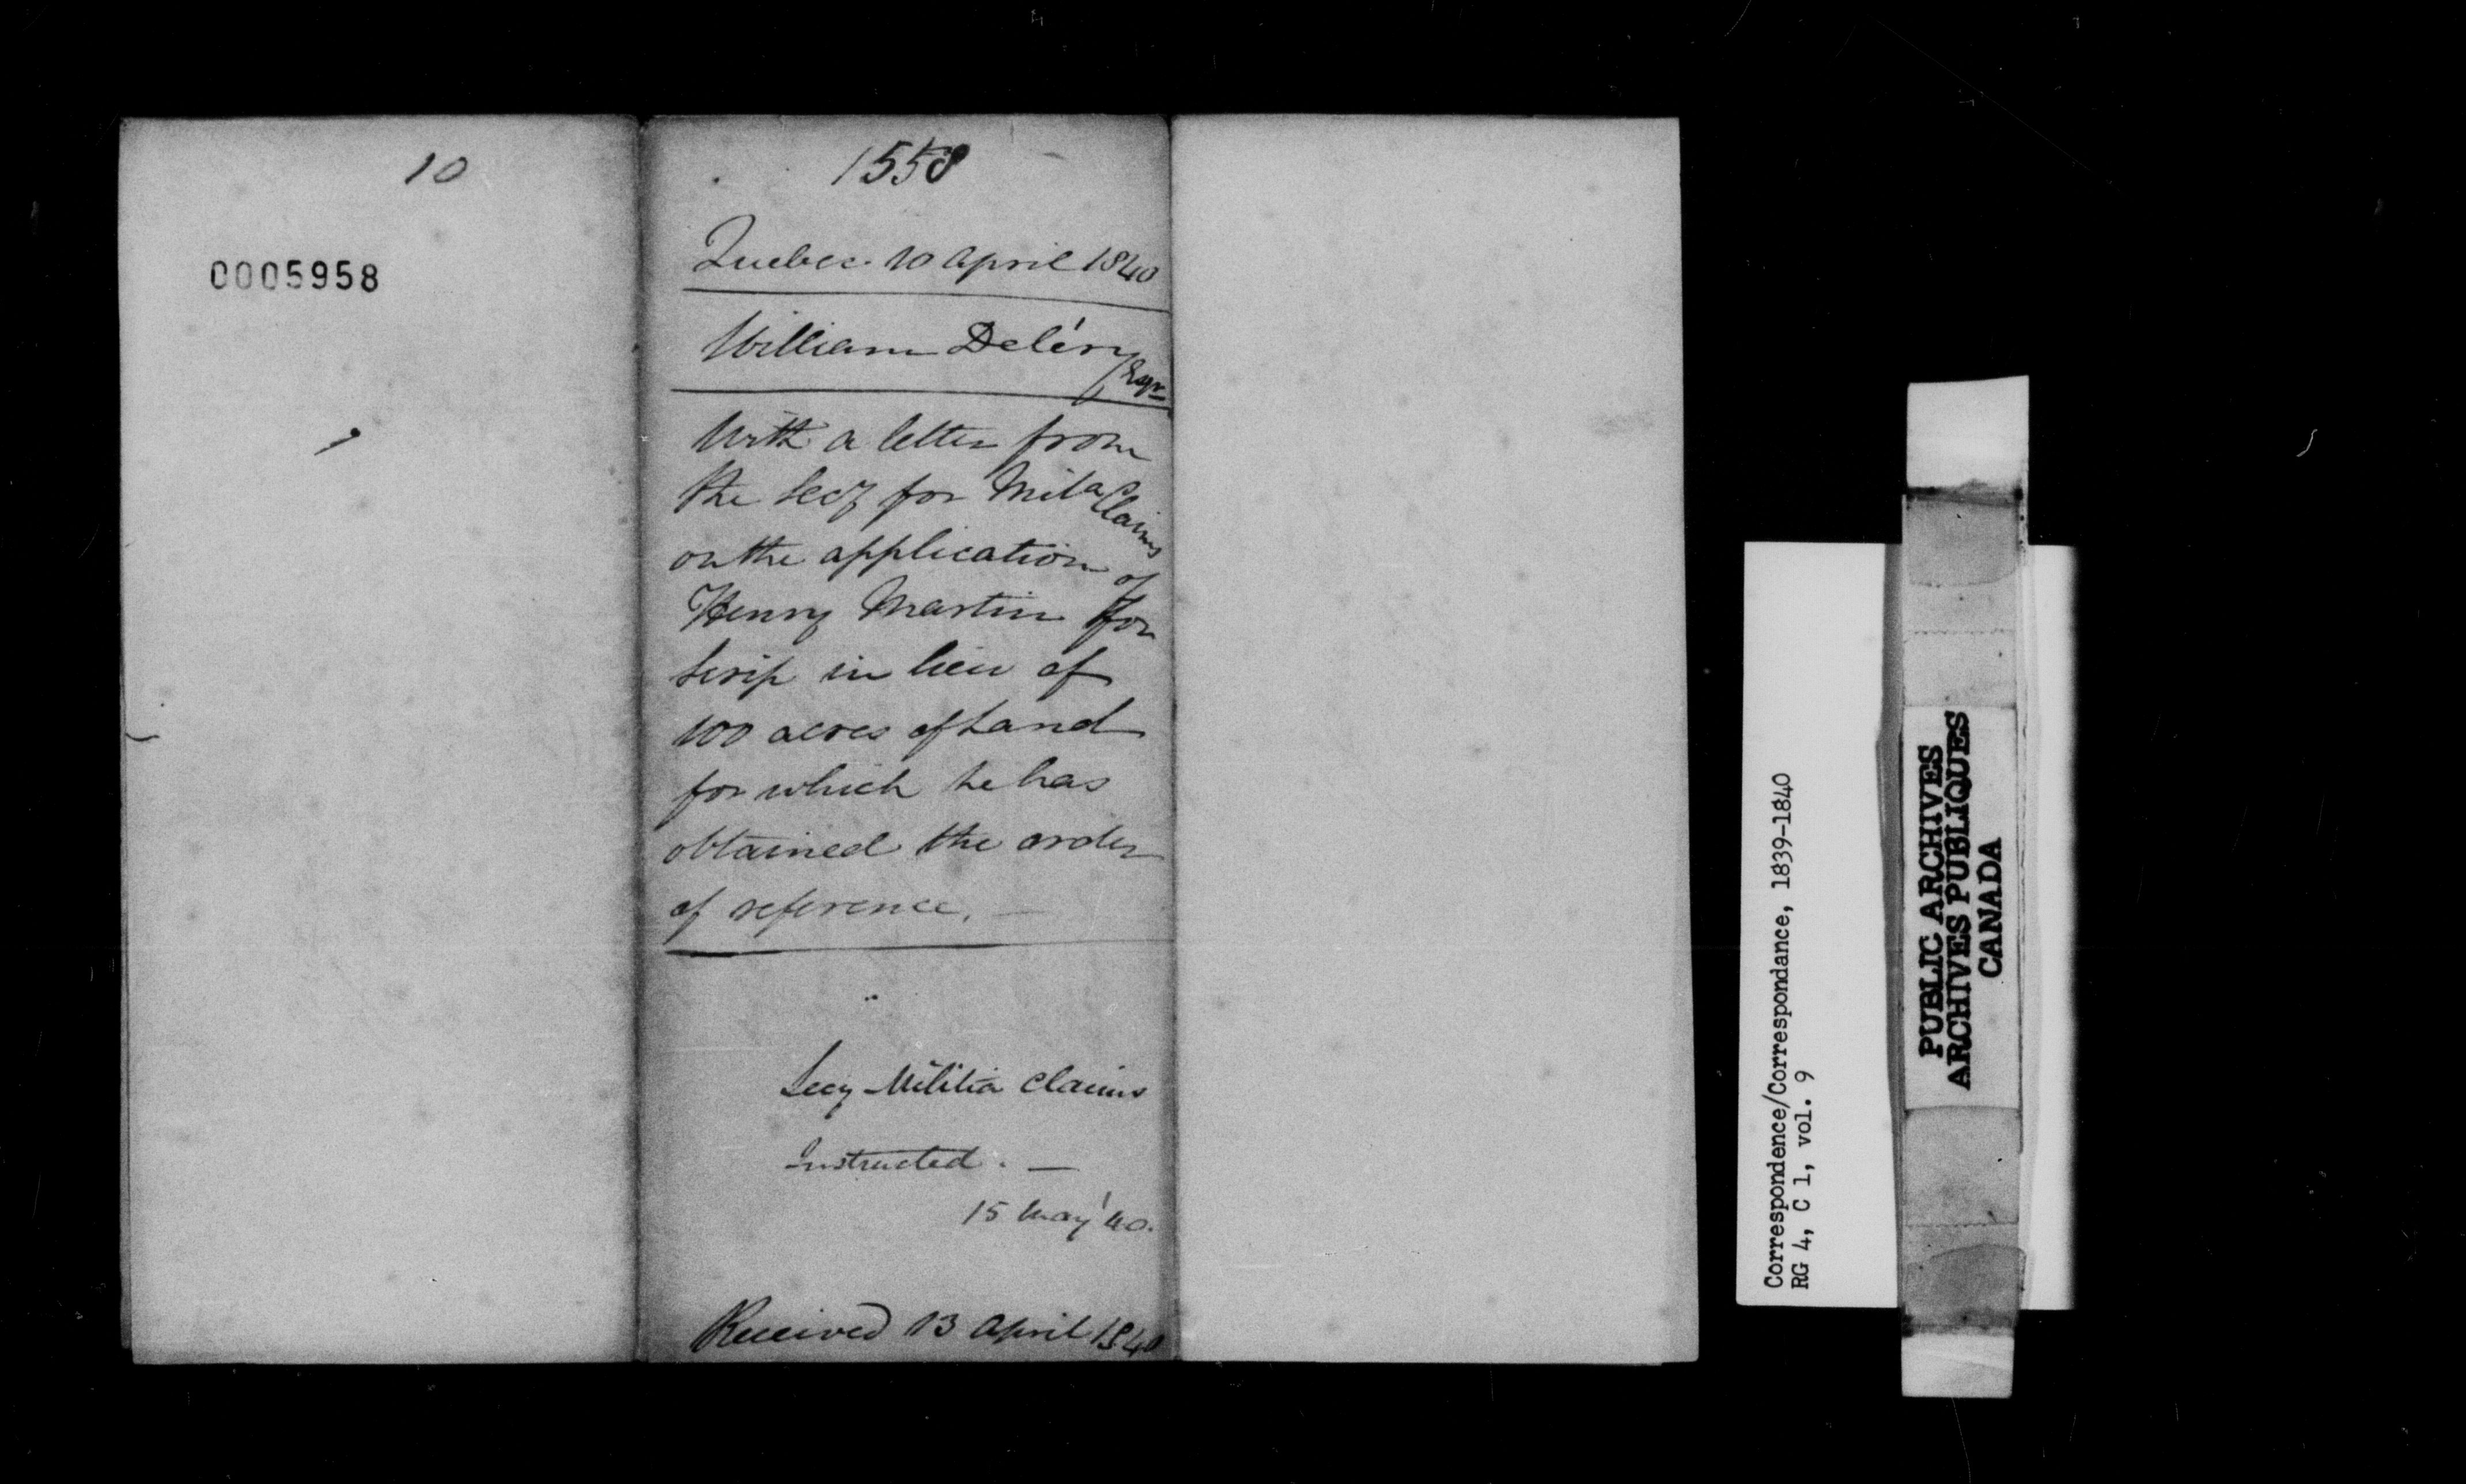 10
0005958
1558
Quebec. 10 April 1840
William Deléry Esqr
With a letter from
the Secy for Mila Claims
on the application of
Henry Martin for
Scrip in lieu of
100 acres of Land
for which he has
obtained the order
of reference. —
Secy Militia Claims
Instructed. —
15 May '40.
Received 13 April 1840
Correspondence/Correspondance, 1839-1840
RG 4, C 1, vol. 9
PUBLIC ARCHIVES
ARCHIVES PUBLIQUES
CANADA